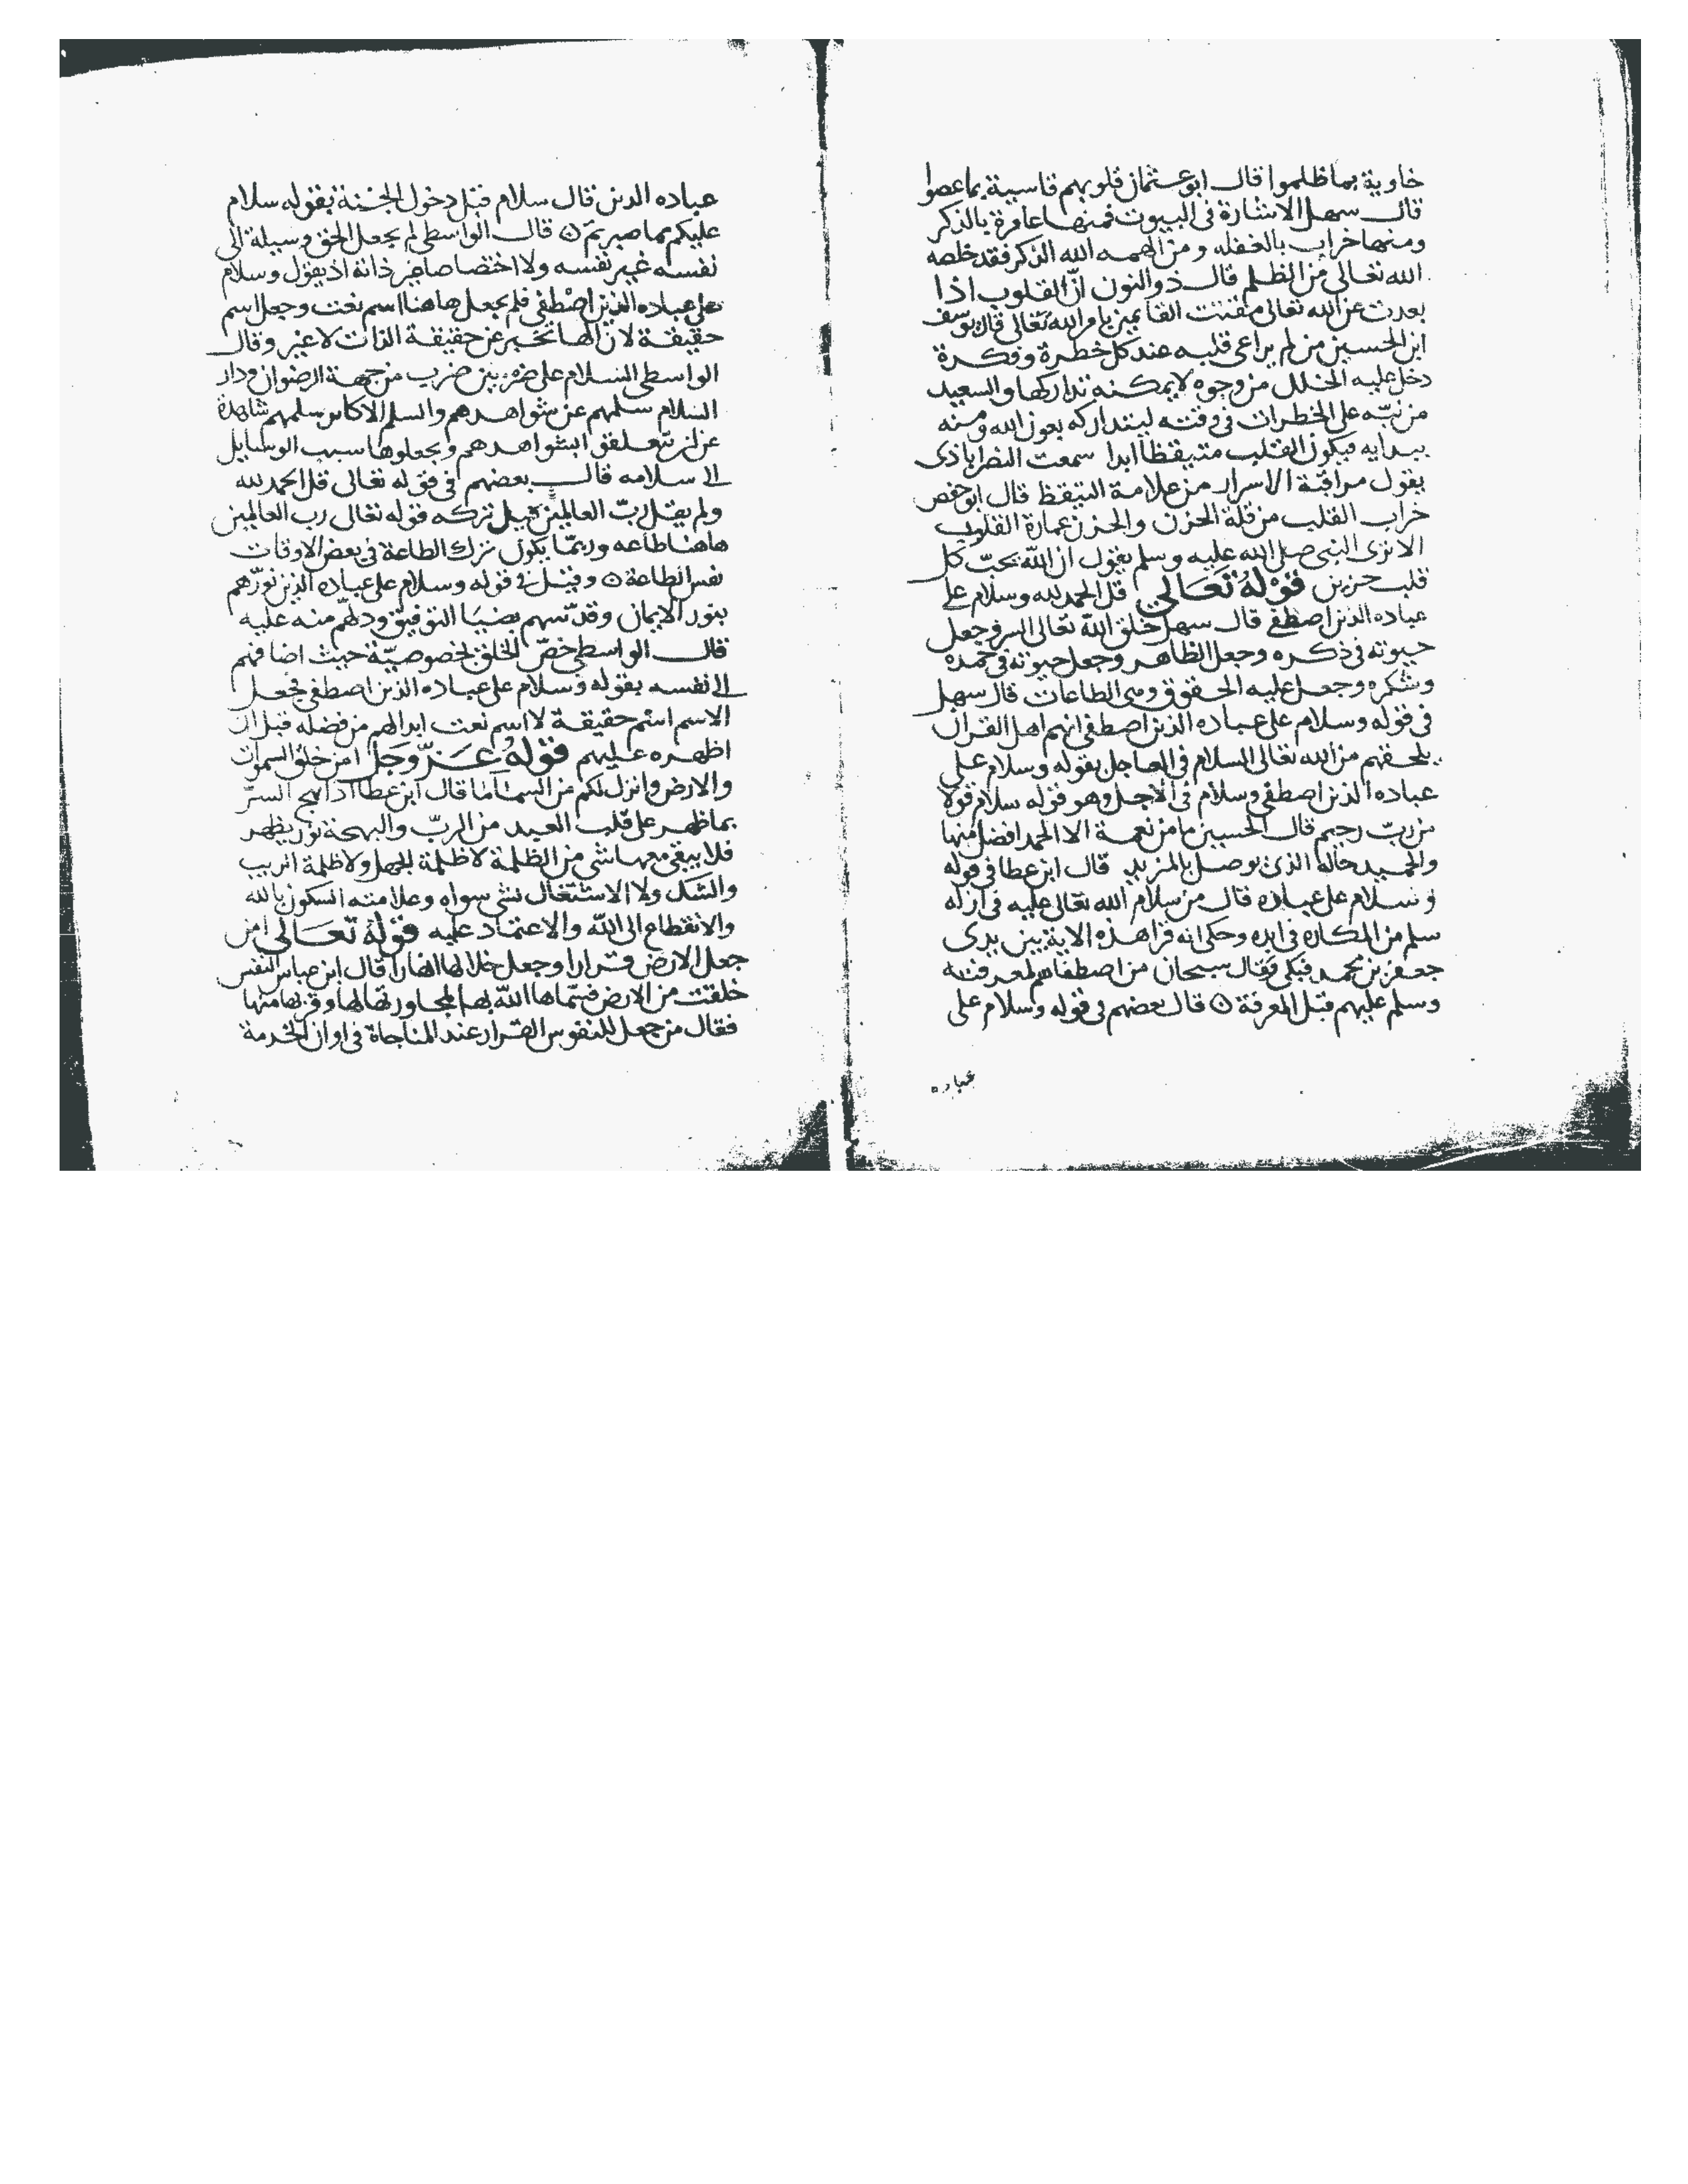 خاوية بما ظلموا قال ابو عثمان قلوبهم قاسية بما عصوا
قال سهل الاشارة فى البيوت فمنها عامرة بالذكر
ومنها خراب بالغفله ومن الهمه الله الذكر فقد خلصه
الله تعالى من الظلم قال ذو النون انّ القلوب اذا
بعدت عن الله تعالى مقتت القايمين بامر الله تعالى قال يوسف
ابن الحسين من لم يراعى قلبه عند كل خطرة وفكرة
دخل عليه الخلل من وجوه لا يمكنه تداركها والسعيد
من نبّه على الخطرات فى وقته ليتداركه بعون الله ومنه
فيكون القلب متيقظا ابدا سمعت النصراباذى
يقول مراقبة الاسرار من علامة التيقظ قال ابو حفص
خراب القلب من قلة الحزن والحزن عمارة القلوب
الا ترى النبى صلى الله عليه وسلم يقول ان الله يحبّ كل
قلب حزين قوله تعالى قل الحمد لله وسلام على
عباده الذين اصطفى قال سهل خلق الله تعالى السر وجعل
حيوته فى ذكره وجعل الظاهر وجعل حيوته فى حمده
وشكره وجعل عليه الحقوق وهى الطاعات قال سهل
فى قوله وسلام على عباده الذين اصطفى انهم اهل القران
يلحقهم من الله تعالى السلام فى العاجل بقوله وسلام على
عباده الذين اصطفى وسلام فى الاجل وهو قوله سلام قولا
من ربّ رحيم قال الحسين ما من نعمة الا الحمد افضل منها
والحميد حاله الذى يوصل بالمزيد قال ابن عطا فى قوله
وسلام على عباده قال من سلام الله تعالى عليه فى ازله
سلم من المكاره فى ابده وحكى انه قرا هذه الاية بين يدى
جعفر بن محمد فبكى وقال سبحان من اصطفاهم لمعرفته
وسلم عليهم قبل المعرفة ۞ قال بعضهم فى قوله وسلام على
عباده
عباده الذين قال سلام قبل دخول الجنة بقوله سلام
عليكم بما صبرتم ۞ قال الواسطى لم يجعل الحق وسيلة الى
نفسه غير نفسه ولا اختصاصا غير ذاته اذ يقول وسلام
على عباده الذين اصطفى فلم يجعل هاهنا اسم نعت وجعل اسم
حقيقة لان الها تخبر عن حقيقة الذات لا غير وقال
الواسطى السلام على ضربين ضرب من جهة الرضوان ودار
السلام سلمهم عن شواهدهم والسلم الاكابر سلمهم شاهدة
عن ان تتعلقوا بشواهدهم ويجعلوها سبب الوسايل
الى سلامه قال بعضهم فى قوله تعالى قل الحمد لله
ولم يقل ربّ العالمين قيل تركه قوله تعالى رب العالمين
هاهنا طاعه وربمّا يكون ترك الطاعة فى بعض الاوقات
نفس الطاعة ۞ وقيل فى قوله وسلام على عباده الذين نورّهم
بنور الايمان وقدّسهم بضيَا التوفيق ودلهّم منه عليه
قال الواسطى خصّ الخلق بخصوصيّة حيث اضافهم
الى نفسه بقوله وسلام على عباده الذين اصطفى فجعل
الاسم اسْم حقيقة لا اسم نعت ابدالهم من فضله قبل ان
اظهره عليهم قوله عزّ وجل امن خلق السموات
والارض وانزل لكم من السمآ مآ قال ابن عطا السرّ
بما ظهر على قلب العبد من الربّ والبهجة نور يظهر
فلا يبقى معها شى من الظلمة لا ظلمة الجهل ولا ظلمة الريب
والشك ولا الاشتغال بشى سواه وعلامته السكون بالله
والانقطاع الى الله والاعتماد عليه قوله تعالى امن
جعل الارض قرارا وجعل خلالها انهارا قال ابن عباس النفس
خلقت من الارض فسّماها الله بها لمجاورتها لها وقربها منها
فقال من جعل للنفوس القرار عند المناجاة فى اوان الخدمة